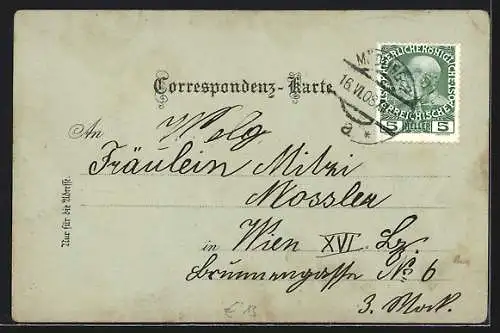 Correspondenz-Karte.
KAISERLICHE KÖNIGLICHE ÖSTERREICHISCHE
5 HELLER 5
16.VI.08
a *
An Wolg
Fräulein Mitzi
Mossler
in Wien XVI. Bz.
Brunnengasse No 6
3. Stock.
Nur für die Adresse.